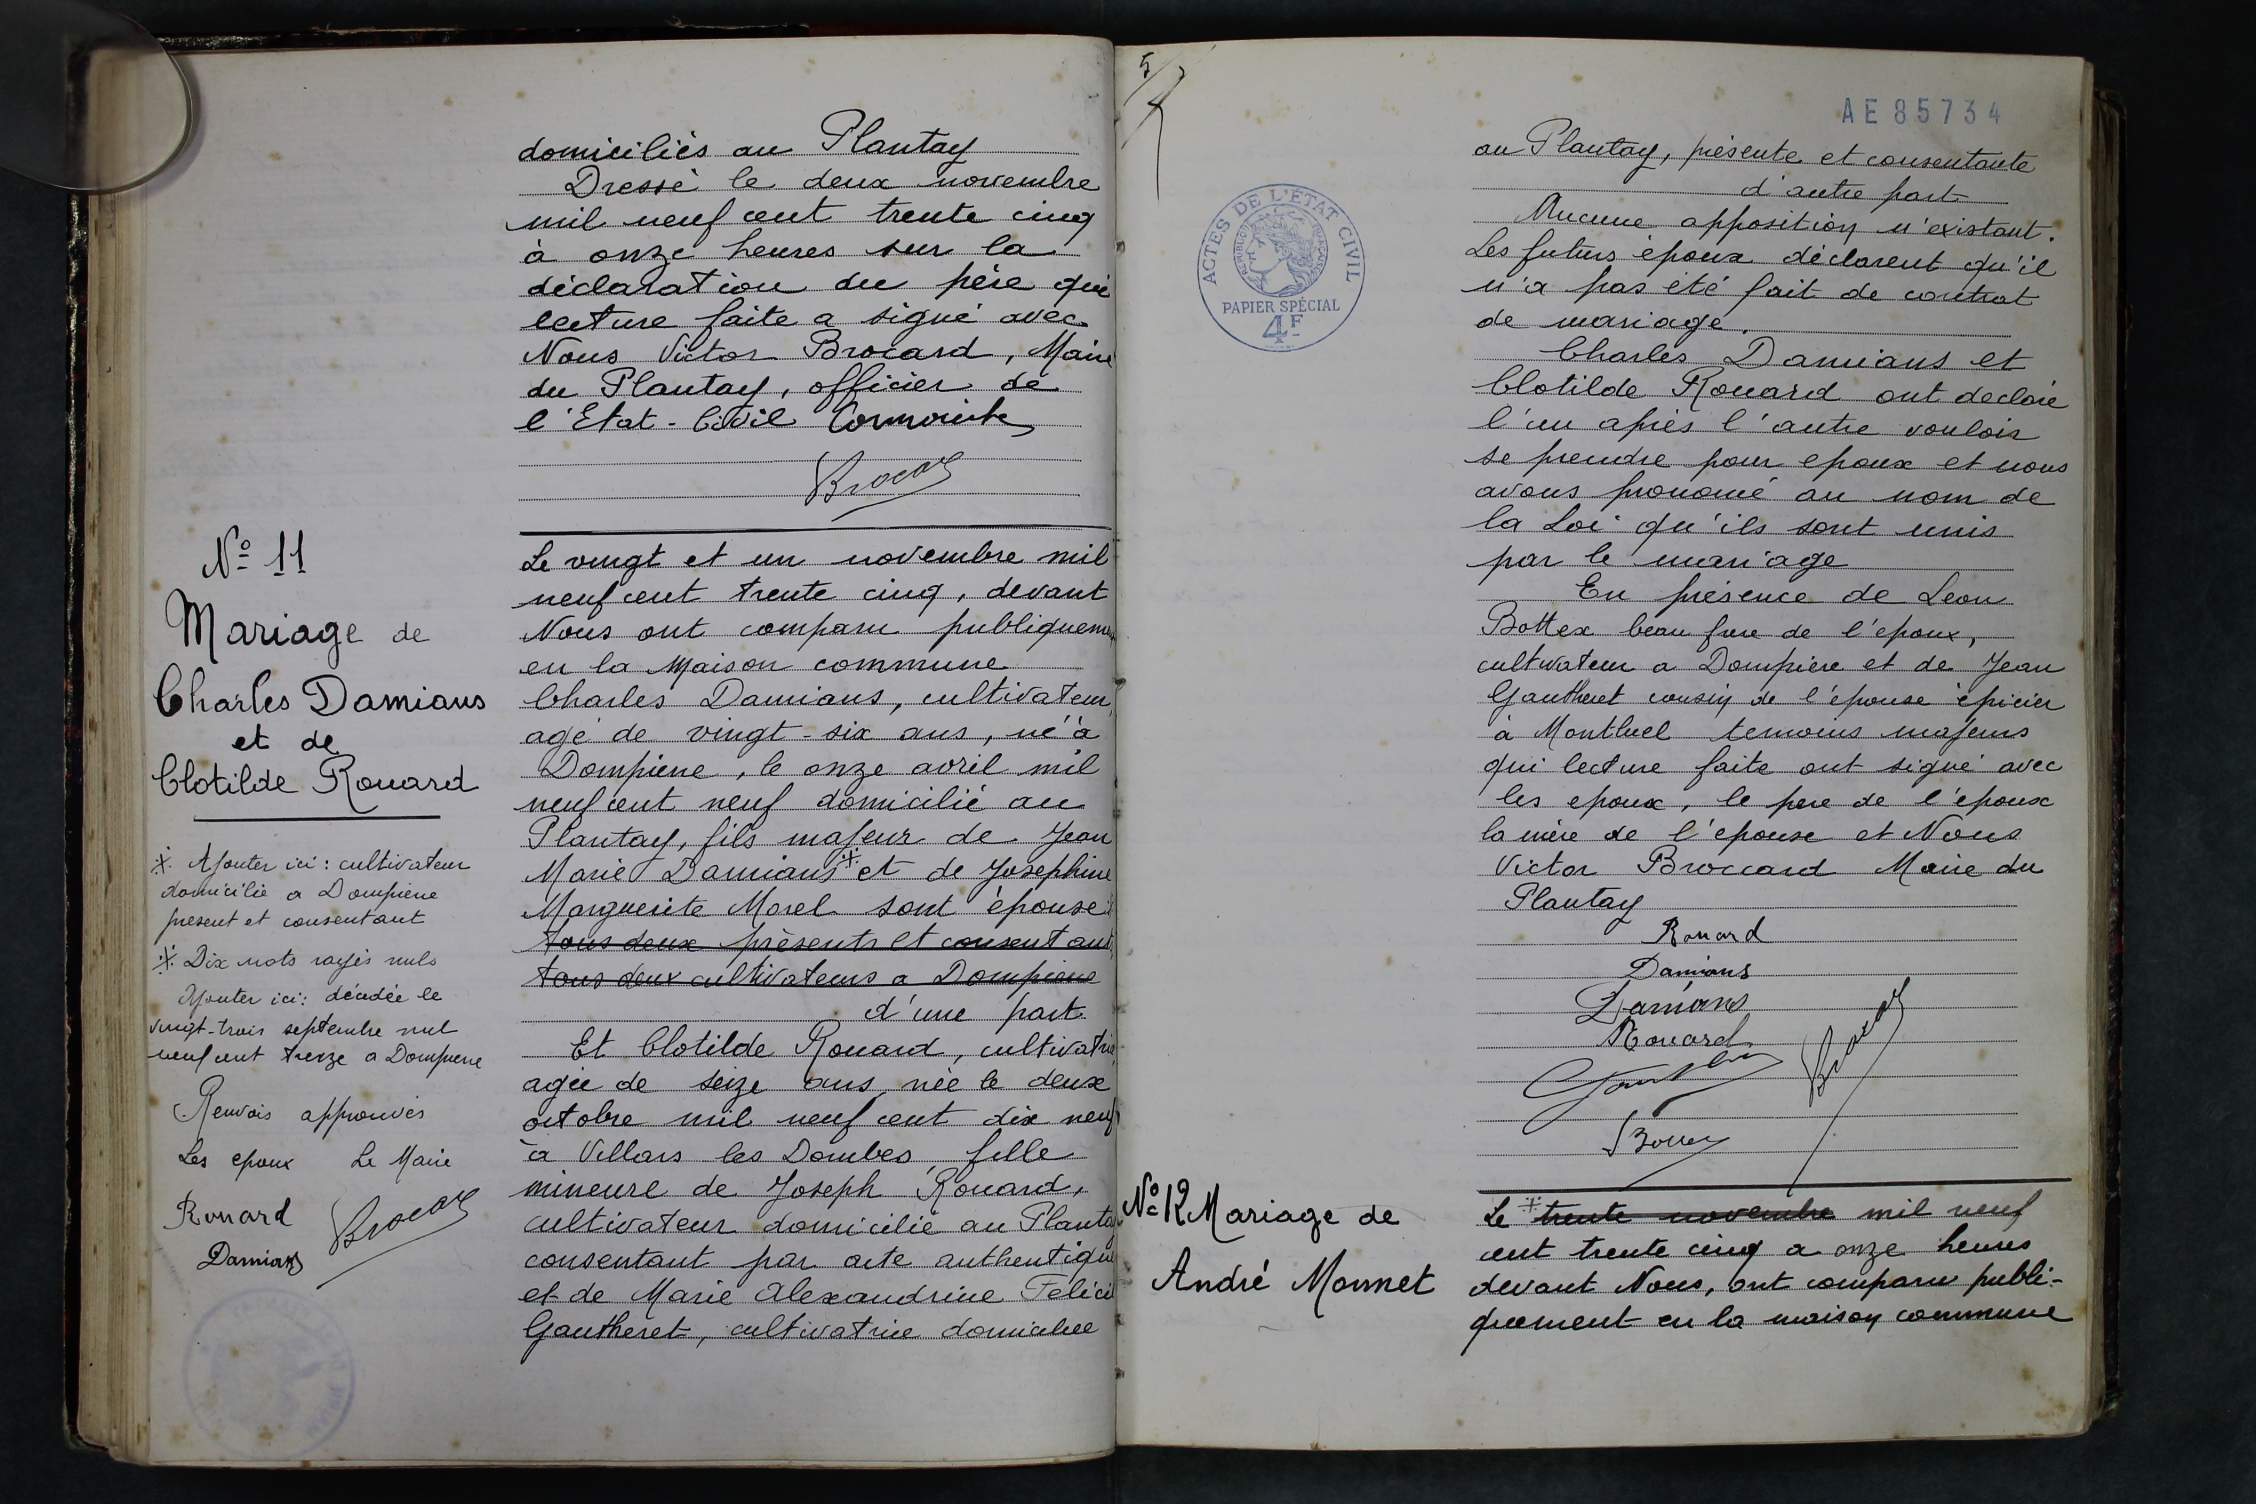 domiciliés au Plantay
Dressé le deux novembre
mil neuf cent trente cinq
à onze heures sur la
déclaration du père qui
lecture faite a signé avec
Nous Victor Brocard, Maire
du Plantay, officier de
l'Etat-Civil
Brocard
Nº 11
Mariage de
Charles Damians
et de
Clotilde Rouard
⁜ Ajouter ici : cultivateur
domicilié a Dompierre
present et consentant
⁜ Dix mots rayés nuls
Ajouter ici : décédée le
vingt-trois septembre mil
neuf cent treize a Dompierre
Renvois approuvés
Les epoux Le Maire
Rouard
Damians
Brocard
Le vingt et un novembre mil
neuf cent trente cinq, devant
Nous ont comparu publiquement
en la Maison commune
Charles Damians, cultivateur,
agé de vingt-six ans, né à
Dompierre, le onze avril mil
neuf cent neuf domicilié au
Plantay, fils majeur de Jean
Marie Damians ⁜ et de Josephine
Marguerite Morel sont épouse
tous deux présents et consentant
tous deux cultivateurs a Dompierre
d'une part
Et Clotilde Rouard, cultivatrice
agée de seize ans née le deux
octobre mil neuf cent dix neuf
à Villars les Dombes, fille
mineure de Joseph Rouard,
cultivateur domicilié au Plantay
consentant par acte authentique
et de Marie Alexandrine Félicie
Gautheret, cultivatrice domiciliée
5
AE 85734
ACTES DE L'ÉTAT CIVIL
RÉPUBLIQUE FRANÇAISE
PAPIER SPÉCIAL
4F
au Plantay, présente et consentante
d'autre part
Aucune apposition n'existant.
Les futurs époux déclarent qu'il
n'a pas été fait de contrat
de mariage.
Charles Damians et
Clotilde Rouard ont declaré
l'un après l'autre vouloir
se prendre pour epoux et nous
avons prononcé au nom de
la Loi qu'ils sont unis
par le mariage
En présence de Leon
Bottex beau frere de l'epoux,
cultivateur a Dompierre et de Jean
Gautheret cousin de l'épouse épicier
à Montluel temoins majeurs
qui lecture faite ont signé avec
les epoux, le pere de l'époux
la mère de l'epouse et Nous
Victor Broccard Maire du
Plantay
Rouard
Damians
Damians
Rouard
Brocard
Nº 12 Mariage de
André Monnet
Le ⁜ trente novembre mil neuf
cent trente cinq a onze heures
devant Nous, ont comparu publi-
quement en la maison commune